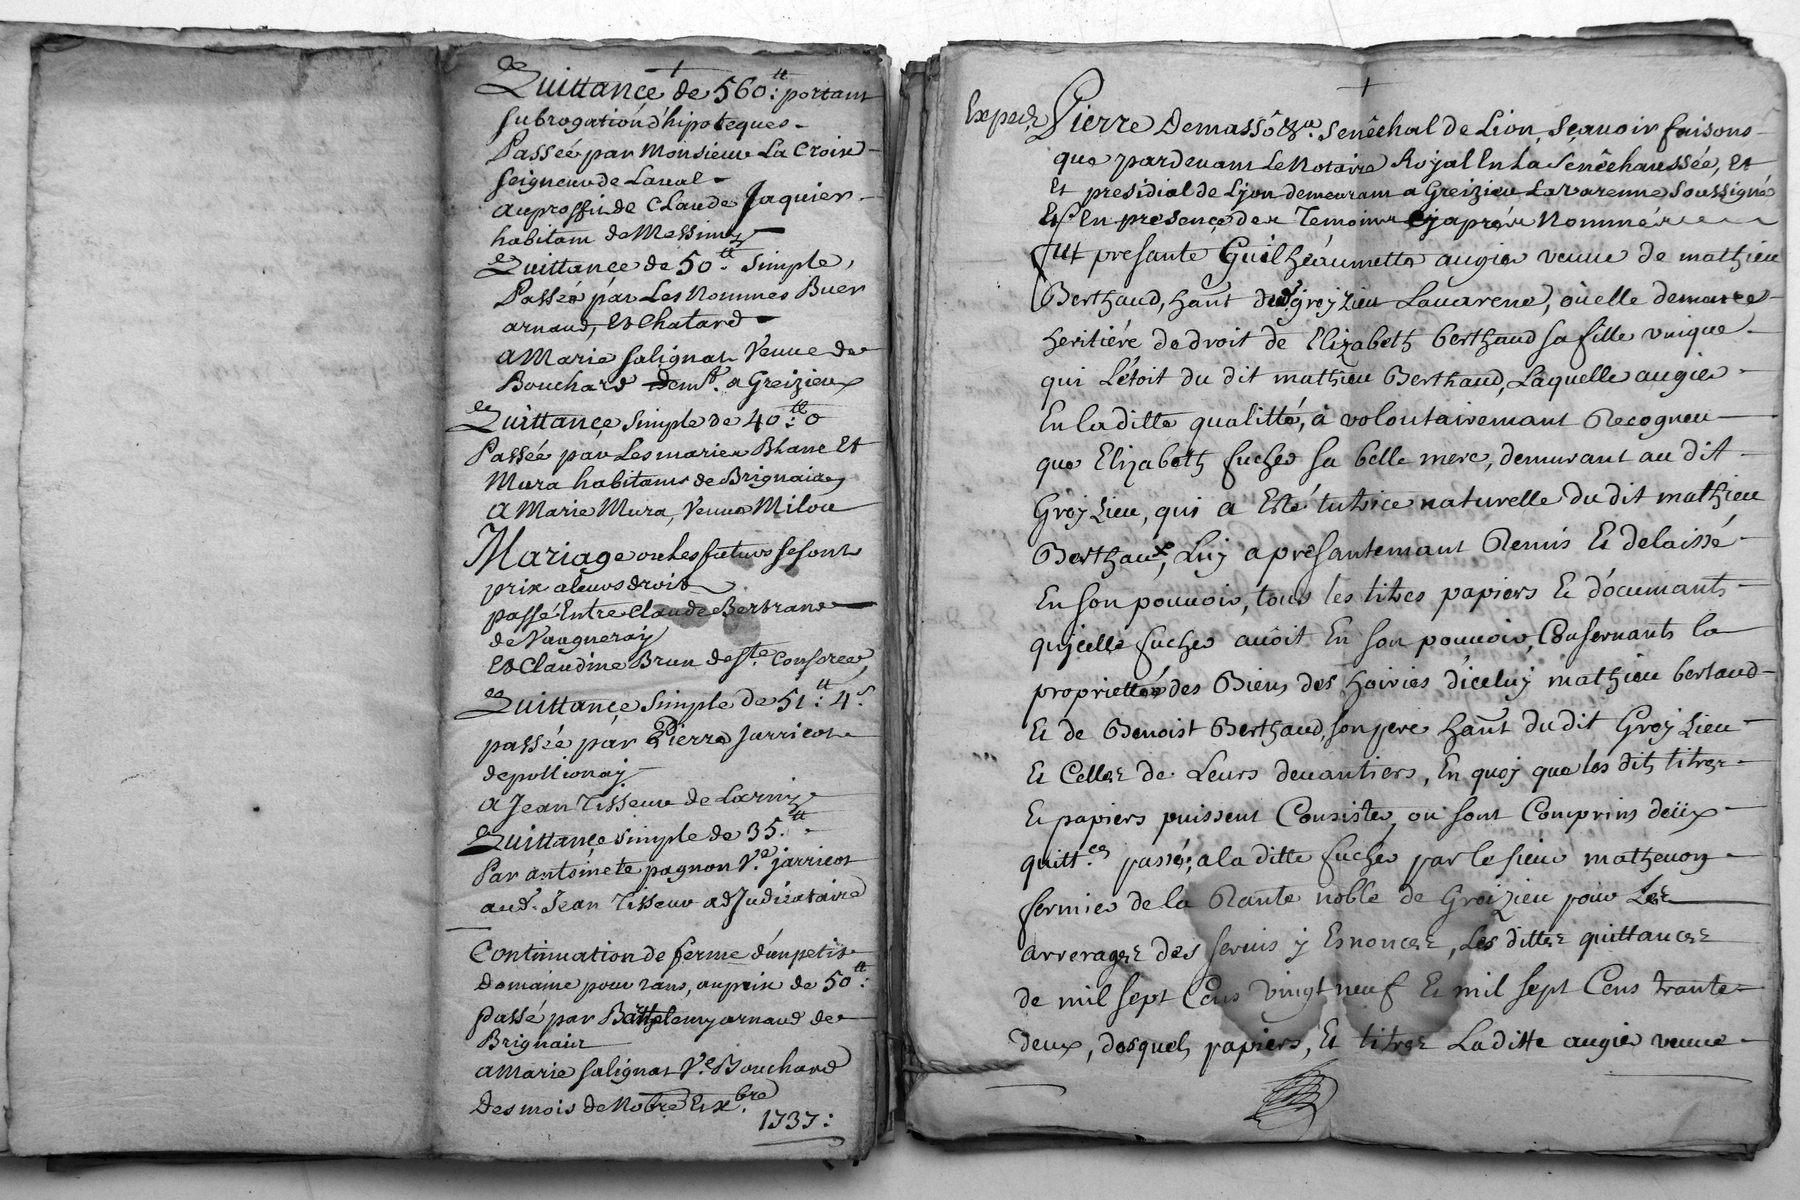 Quittance de 560tt: portant
subrogation d'hipoteques
Passée par Monsieur La Croix
seigneur de Laual
au proffit de Claude Jaquier
habitant de Messimy
Quittance de 50tt simple,
Passée par Les Nommes Buer
arnaud, Et Chatard
a Marie salignat Veuue de
Bouchard demt. a Greizieux
Quittance simple de 40tt: 0
Passée par Les mariex Blanc Et
Mura habitants de Brignaix
a Marie Mura, Veuue Milou
Mariage ou les futurs se sont
prix a leurs droits
passé Entre Claude Bertrand
de Vaugneray
Et Claudine Brun de Ste. Consorce
Quittance simple de 51tt: 4s
passée par Pierre Jarricot
de pollionay
a Jean Tisseur de Larny
Quittance simple de 35tt
Par antoinete pagnon Ve. jarricot
aud. Jean Tisseur adJudicataire
Continuation de ferme d'un petit
domaine pour 2 ans, au prix de 50tt:
passé par Barthelemy arnaud de
Brignaix
a Marie salignat Ve. Bouchard
Des mois de Nobre Et Xbre.
1737:
Exped.
Pierre Demasso &a. senêchal de Lion, sçauoir faisons
que pardeuant Le Notaire Royal En La Senêchaussée, Et
Et presidial de Lyon demeurant a Greizieu Lavarenne soussigné
Et En presence des Temoins cy aprés Nommés
fut presante Guilheaumette augier veuue de mathieu
Berthaud, hant dud. groyzieu Lauarene, où elle demeure
heritiére de droit de Elizabeth berthaud sa fille vnique
qui L'étoit du dit mathieu Berthaud, Laquelle augier
En la ditte qualitté, à volontairemant Recogneu
que Elizabeth fucher sa belle mere, demurant au dit
Groyzieu, qui a Esté tutrice naturelle du dit mathieu
Berthaux, Luy a présantemant Remis Et delaissé
En son pouuoir, tous les titres papiers Et documants
qu'jcelle fucher auoit En son pouuoir, Consernants la
propriettée des Biens des hoiries d'iceluy mathieu bertaud
Et de Benoist Berthaud, son pere hant du dit Groyzieu
Et Celles de Leurs deuantiers, En quoy que les dits titres
Et papiers puissent Consister, ou sont Comprins deüx
quittces passés a la ditte fucher par le sieur matheuon
fermier de la Rante noble de Groizieu pour Les
arrerages des seruis y Esnonces, Les dittes quittances
de mil sept Cens vingt neuf Et mil sept Cens trante
deux, desquels papiers, Et titres Laditte augier veuue